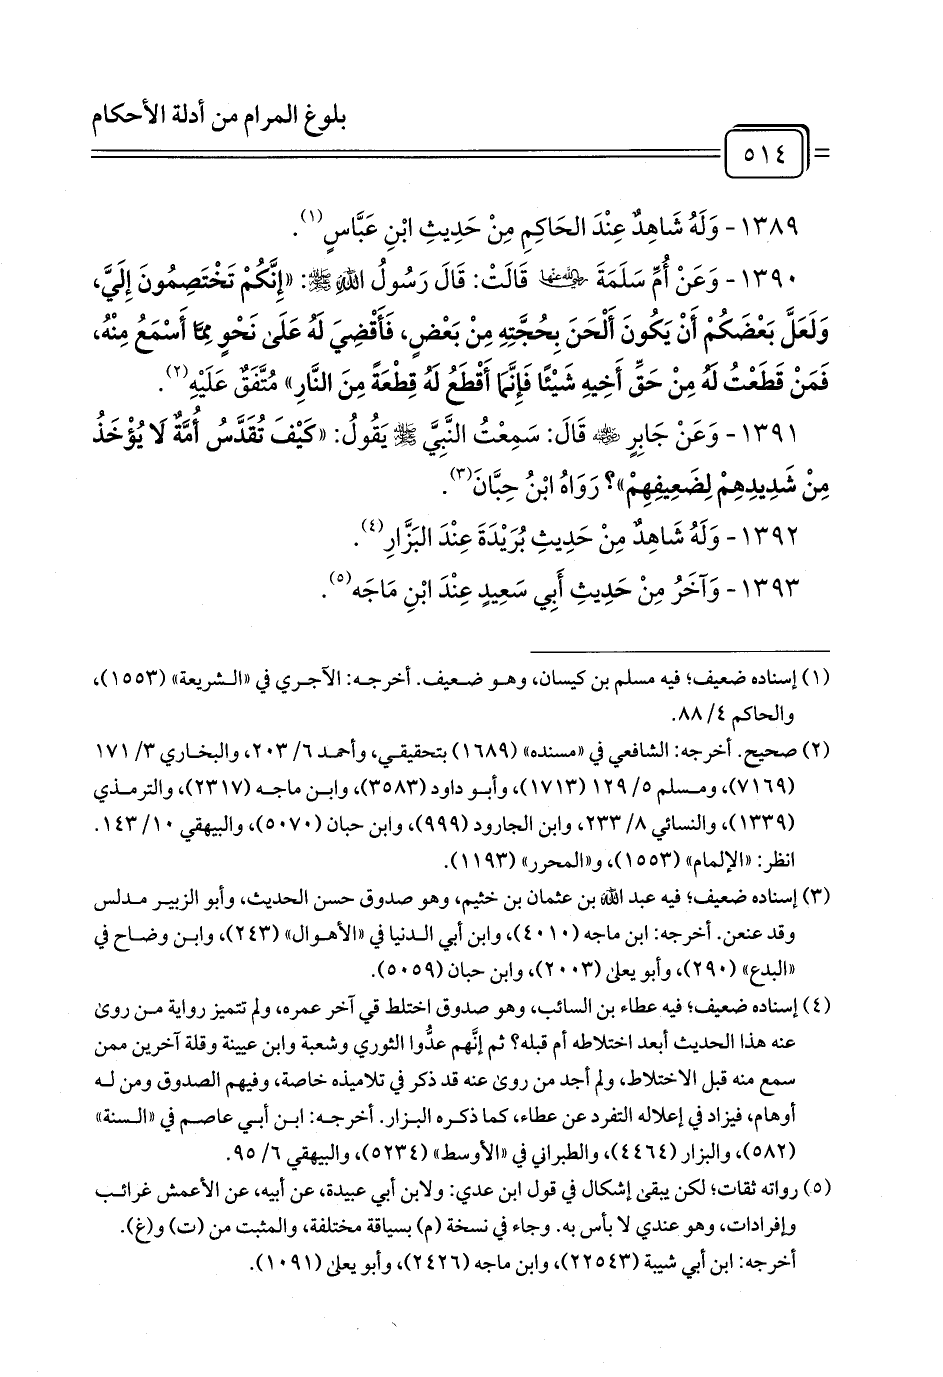 بلوغ المرام من أدلة الأحكام
٥١٤
١٣٨٩- وَلَهُ شَاهِدٌ عِنْدَ الحَاكِمِ مِنْ حَدِيثِ ابْنِ عَبَّاسٍ(١).
١٣٩٠- وَعَنْ أُمِّ سَلَمَةَ رضي الله عنها قَالَتْ: قَالَ رَسُولُ اللهِ ﷺ: «إِنَّكُمْ تَخْتَصِمُونَ إِلَيَّ،
وَلَعَلَّ بَعْضَكُمْ أَنْ يَكُونَ أَلْحَنَ بِحُجَّتِهِ مِنْ بَعْضٍ، فَأَقْضِيَ لَهُ عَلَى نَحْوٍ مِمَّا أَسْمَعُ مِنْهُ،
فَمَنْ قَطَعْتُ لَهُ مِنْ حَقِّ أَخِيهِ شَيْئًا فَإِنَّمَا أَقْطَعُ لَهُ قِطْعَةً مِنَ النَّارِ» مُتَّفَقٌ عَلَيْهِ(٢).
١٣٩١- وَعَنْ جَابِرٍ رضي الله عنه قَالَ: سَمِعْتُ النَّبِيَّ ﷺ يَقُولُ: «كَيْفَ تُقَدَّسُ أُمَّةٌ لَا يُؤْخَذُ
مِنْ شَدِيدِهِمْ لِضَعِيفِهِمْ»؟ رَوَاهُ ابْنُ حِبَّانَ(٣).
١٣٩٢- وَلَهُ شَاهِدٌ مِنْ حَدِيثِ بُرَيْدَةَ عِنْدَ البَزَّارِ(٤).
١٣٩٣- وَآخَرُ مِنْ حَدِيثِ أَبِي سَعِيدٍ عِنْدَ ابْنِ مَاجَه(٥).
(١) إسناده ضعيف؛ فيه مسلم بن كيسان، وهو ضعيف. أخرجه: الآجري في «الشريعة» (١٥٥٣)،
والحاكم ٤/ ٨٨.
(٢) صحيح. أخرجه: الشافعي في «مسنده» (١٦٨٩) بتحقيقي، وأحمد ٦/ ٢٠٣، والبخاري ٣/ ١٧١
(٧١٦٩)، ومسلم ٥/ ١٢٩ (١٧١٣)، وأبو داود (٣٥٨٣)، وابن ماجه (٢٣١٧)، والترمذي
(١٣٣٩)، والنسائي ٨/ ٢٣٣، وابن الجارود (٩٩٩)، وابن حبان (٥٠٧٠)، والبيهقي ١٠/ ١٤٣.
انظر: «الإلمام» (١٥٥٣)، و«المحرر» (١١٩٣).
(٣) إسناده ضعيف؛ فيه عبد الله بن عثمان بن خثيم، وهو صدوق حسن الحديث، وأبو الزبير مدلس
وقد عنعن. أخرجه: ابن ماجه (٤٠١٠)، وابن أبي الدنيا في «الأهوال» (٢٤٣)، وابن وضاح في
«البدع» (٢٩٠)، وأبو يعلى (٢٠٠٣)، وابن حبان (٥٠٥٩).
(٤) إسناده ضعيف؛ فيه عطاء بن السائب، وهو صدوق اختلط في آخر عمره، ولم تتميز رواية من روى
عنه هذا الحديث أبعد اختلاطه أم قبله؟ ثم إنَّهم عدُّوا الثوري وشعبة وابن عيينة وقلة آخرين ممن
سمع منه قبل الاختلاط، ولم أجد من روى عنه قد ذكر في تلاميذه خاصة، وفيهم الصدوق ومن له
أوهام، فيزاد في إعلاله التفرد عن عطاء، كما ذكره البزار. أخرجه: ابن أبي عاصم في «السنة»
(٥٨٢)، والبزار (٤٤٦٤)، والطبراني في «الأوسط» (٥٢٣٤)، والبيهقي ٦/ ٩٥.
(٥) رواته ثقات؛ لكن يبقى إشكال في قول ابن عدي: ولابن أبي عبيدة، عن أبيه، عن الأعمش غرائب
وإفرادات، وهو عندي لا بأس به. وجاء في نسخة (م) بسياقة مختلفة، والمثبت من (ت) و(غ).
أخرجه: ابن أبي شيبة (٢٢٥٤٣)، وابن ماجه (٢٤٢٦)، وأبو يعلى (١٠٩١).